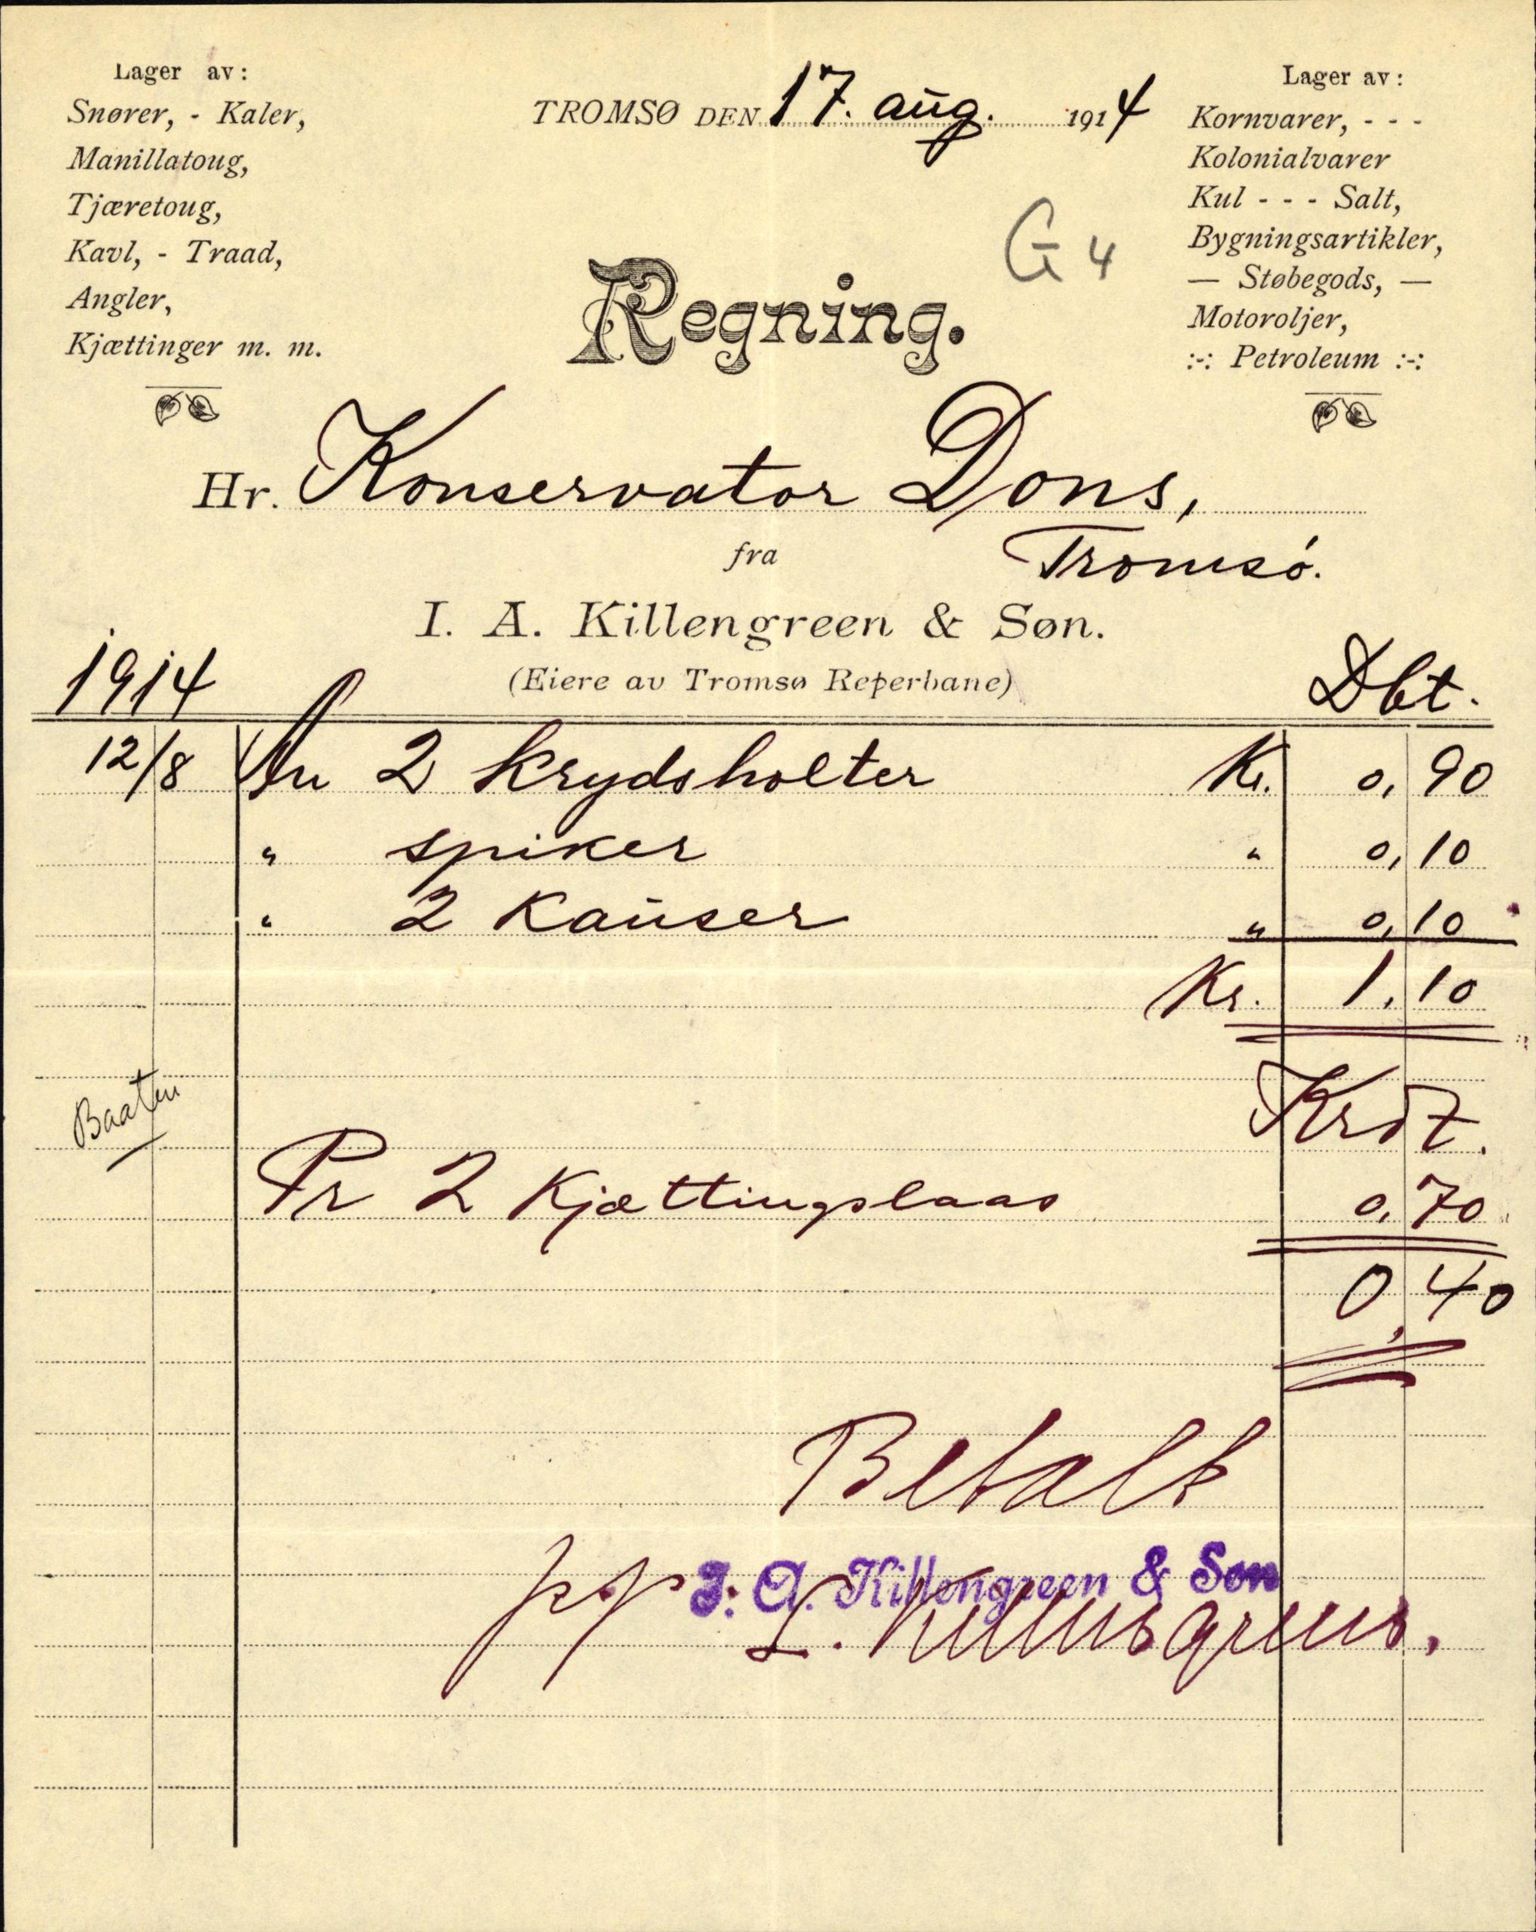 Lager av:
Snører, - Kaler,
Manillatoug,
Tjæretoug,
Kavl, - Traad,
Angler,
Kjættinger m. m.
TROMSØ DEN 17. aug. 1914
Lager av:
Kornvarer, - - -
Kolonialvarer
Kul - - - Salt,
Bygningsartikler,
— Støbegods, —
Motoroljer,
:-: Petroleum :-:
G 4
Regning.
Hr. Konservator Dons,
fra Tromsø.
I. A. Killengreen & Søn.
(Eiere av Tromsø Reperbane)
1914 Dbt.
12/8 An 2 krydsholter Kr. 0,90
" spiker " 0,10
" 2 Kauser " 0,10
Kr. 1,10
Baaten
Krdt.
Pr 2 Kjættingslaas 0,70
0,40
Betalt
pp I. A. Killengreen & Søn
L. Killengreen.